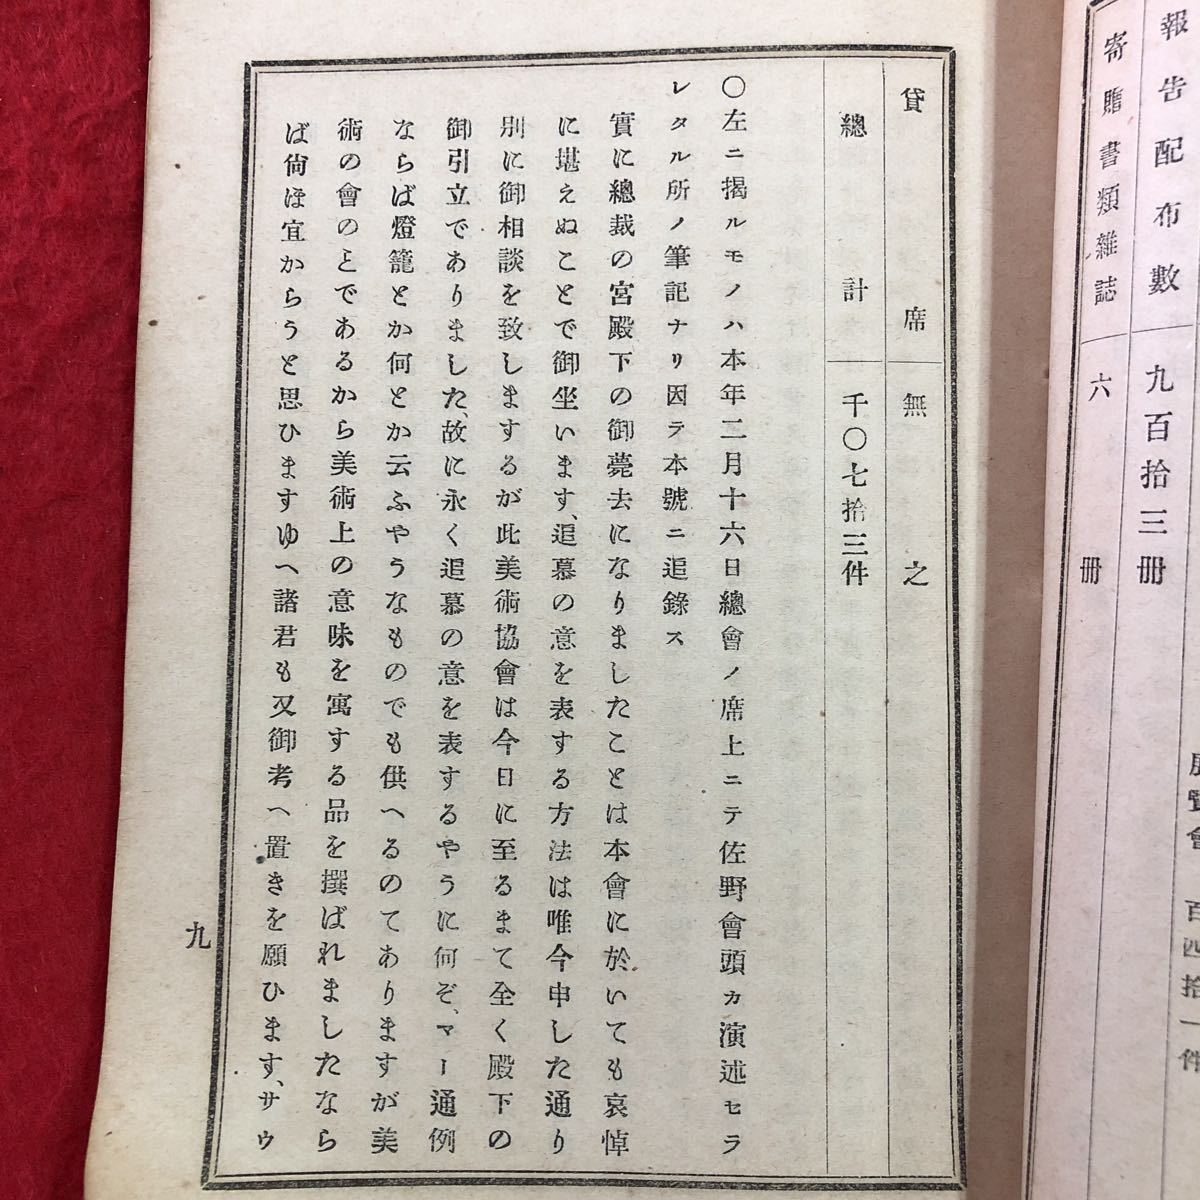 報告配布數 九百拾三冊
寄贈書類雜誌 六冊
貸席 無之
總計 千〇七拾三件
〇左ニ揭ルモノハ本年二月十六日總會ノ席上ニテ佐野會頭カ演述セラ
レタル所ノ筆記ナリ因テ本號ニ追錄ス
實に總裁の宮殿下の御薨去になりましたことは本會に於いても哀悼
に堪えぬことで御坐います、追慕の意を表する方法は唯今申した通り
別に御相談を致しまするが此美術協會は今日に至るまて全く殿下の
御引立でありました、故に永く追慕の意を表するやうに何ぞ、マー通例
ならば燈籠とか何とか云ふやうなものでも供へるのてありますが美
術の會のことであるから美術上の意味を寓する品を撰ばれましたなら
ば尙ほ宜からうと思ひますゆへ諸君も又御考へ置きを願ひます、サウ
九
覽會 百四拾一件